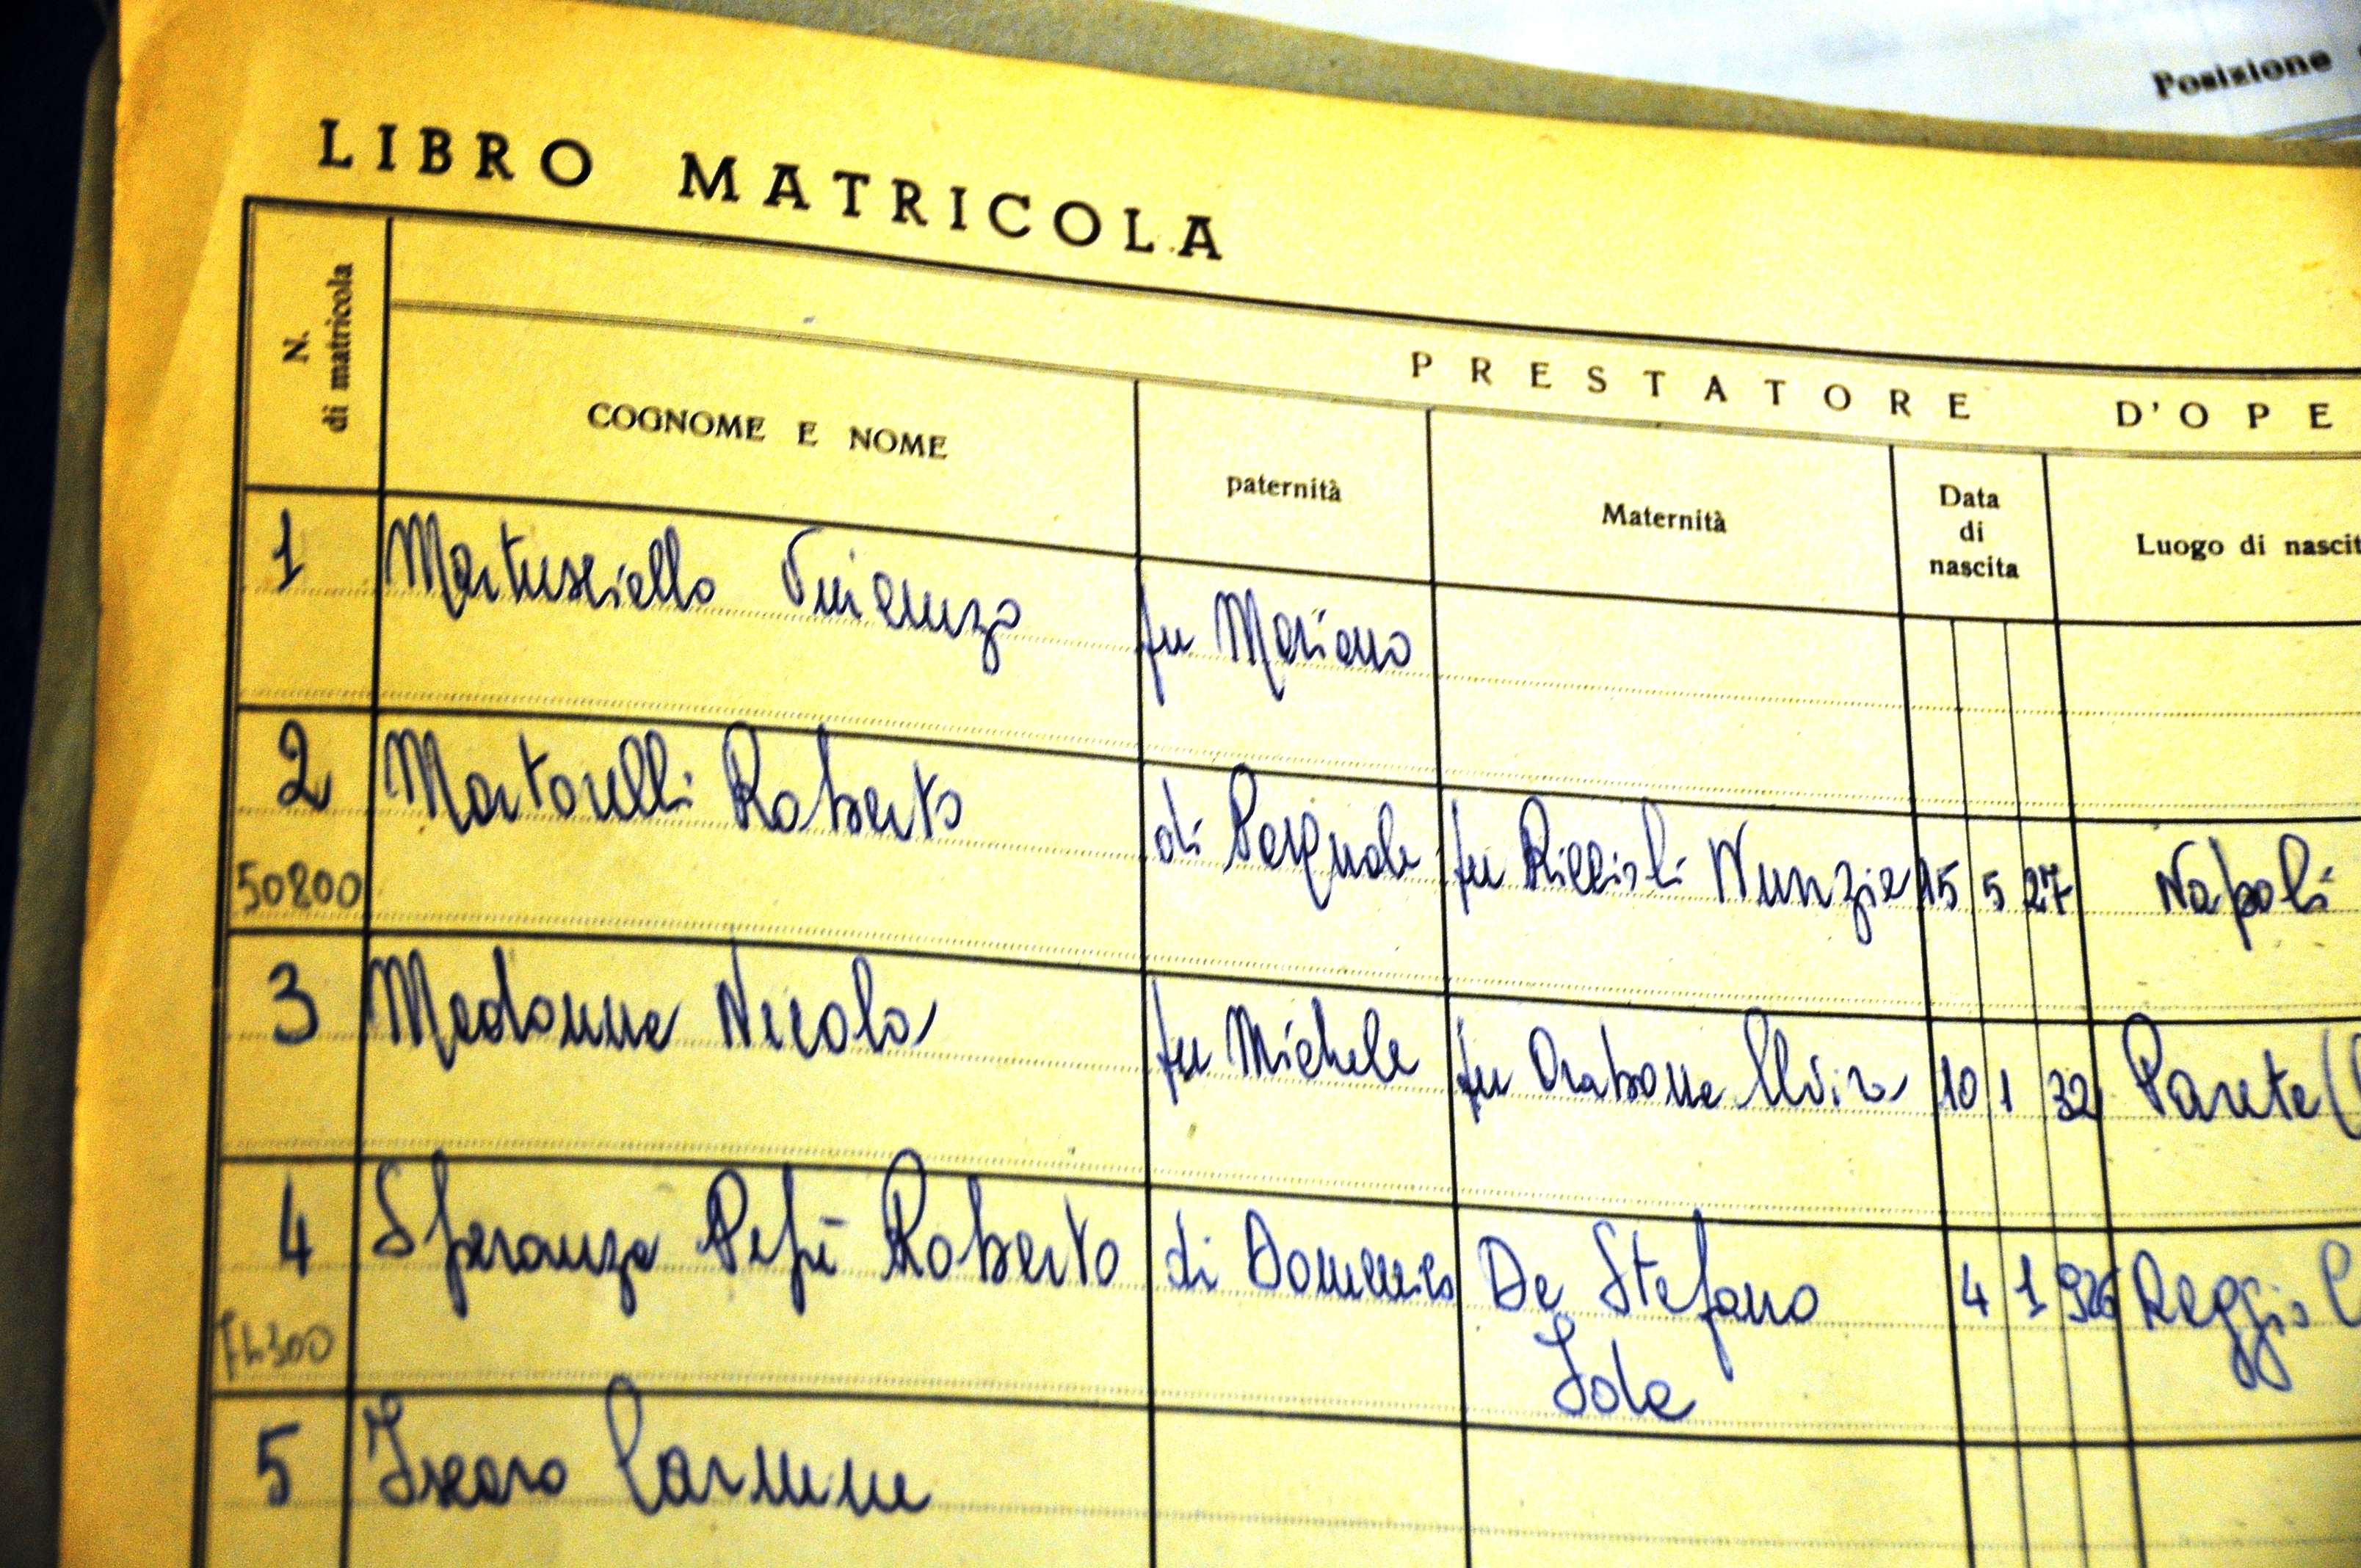 Posizione
LIBRO MATRICOLA
N. di matricola
PRESTATORE D'OPE
COGNOME E NOME
paternità
Maternità
Data di nascita
Luogo di nascit
1 Martusciello Vincenzo fu Mariano
2 Martorelli Roberto di Pasquale fu Riccioli Nunzia 15 5 27 Napoli
50800
3 Madonna Nicola fu Michele fu Orabona 10 1 32 Parete (
4 Speranza Pepè Roberto di Domenico De Stefano 4 1 926 Reggio C
Iole
5 Carmine